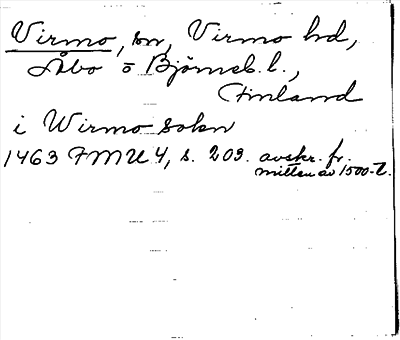 Virmo, sn, Virmo hd,
Åbo o Björneb. l.,
Finland
i Wirmo sokn
1463 FMU 4, s. 203. avskr. fr.
mitten av 1500-t.